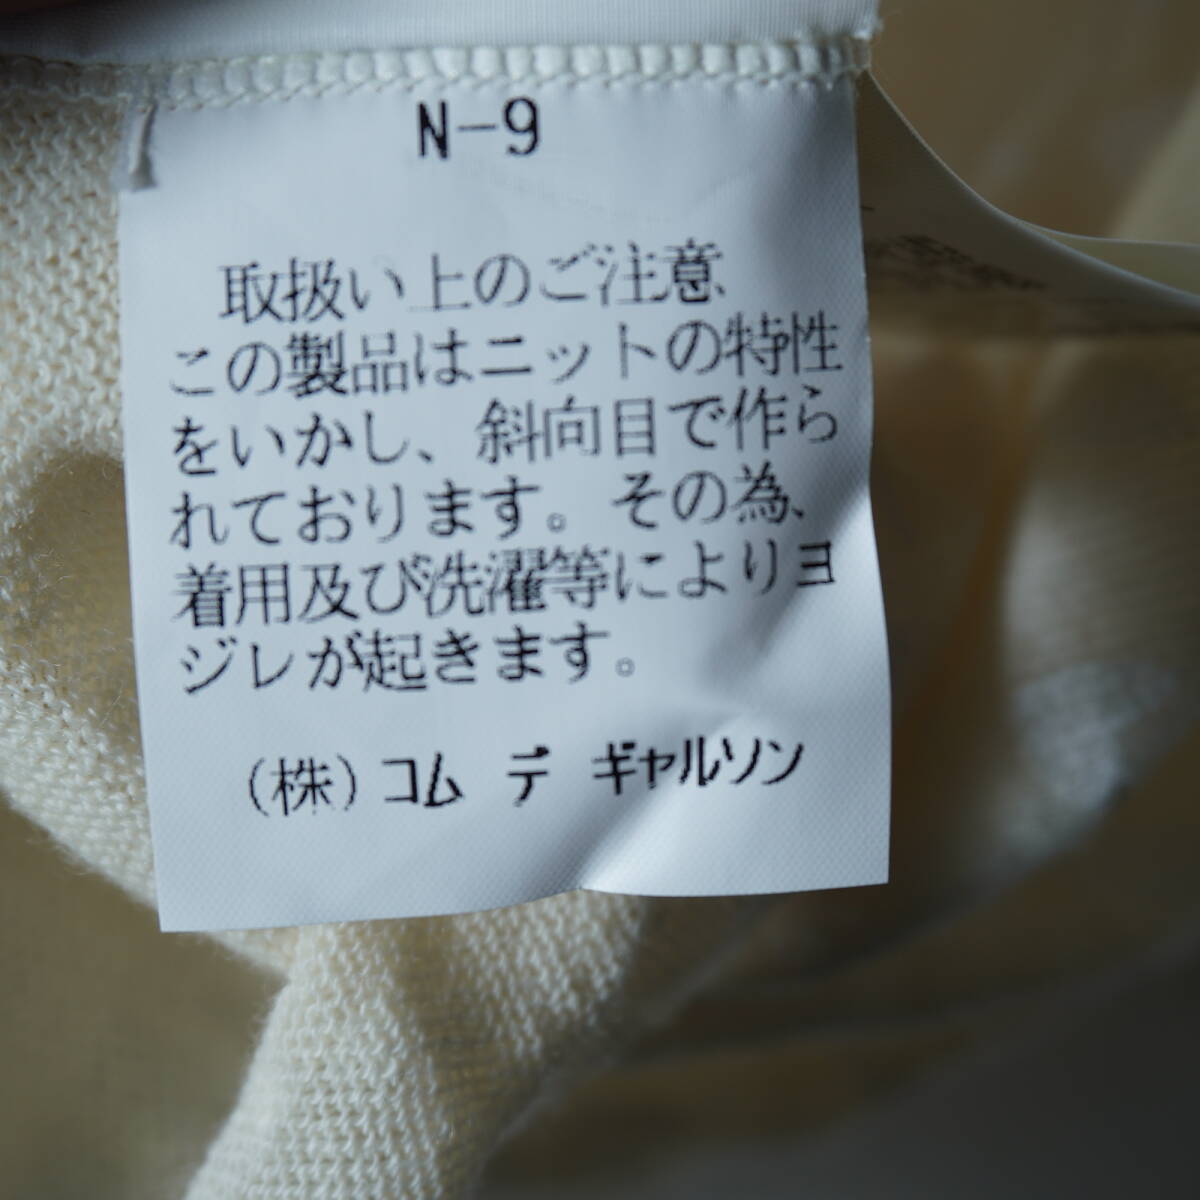 N-9
取扱い上のご注意
この製品はニットの特性
をいかし、斜向目で作ら
れております。その為、
着用及び洗濯等によりヨ
ジレが起きます。
(株)コム デ ギャルソン